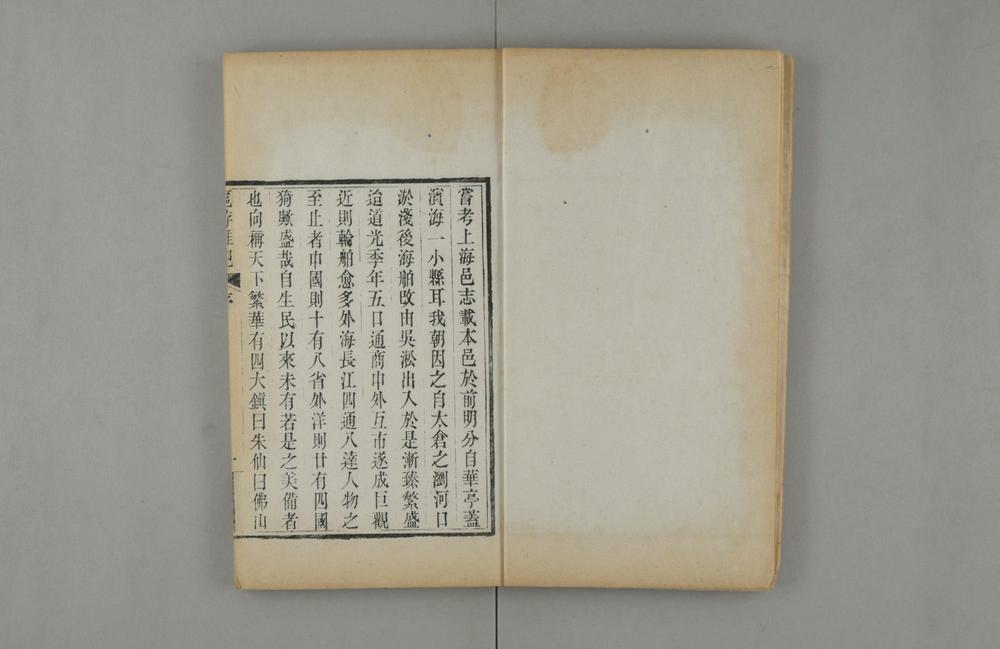 嘗考上海邑志載本邑於前明分自華亭蓋
濱海一小縣耳我朝因之自太倉之瀏河口
淤淺後海舶改由吳淞出入於是漸臻繁盛
迨道光季年五口通商中外互市遂成巨觀
近則輪舶愈多外海長江四通八達人物之
至止者中國則十有八省外洋則廿有四國
猗歟盛哉自生民以來未有若是之美備者
也向稱天下繁華有四大鎮曰朱仙曰佛山
游雜記 序 一